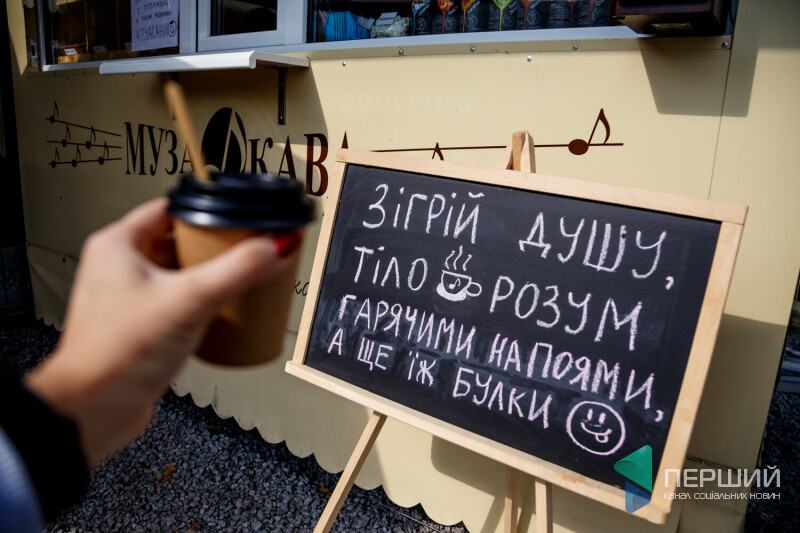 КРУАСАНИ
МУЗА КАВА
ЗІГРІЙ ДУШУ,
ТІЛО РОЗУМ
ГАРЯЧИМИ НАПОЯМИ,
А ЩЕ ЇЖ БУЛКИ
ПЕРШИЙ
КАНАЛ СОЦІАЛЬНИХ НОВИН